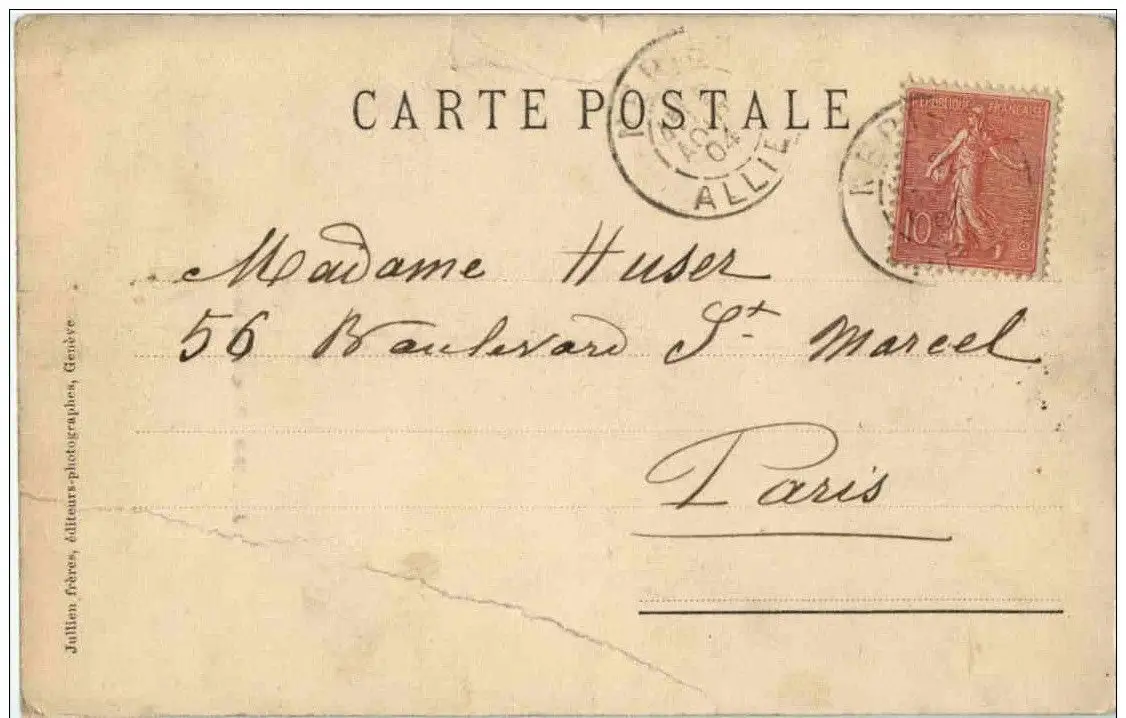 CARTE POSTALE
AOUT
04
ALLIE
REPUBLIQUE FRANÇAISE
10 c
Madame Huser
56 Boulevard St Marcel
Paris
Jullien frères, éditeurs-photographes, Genève